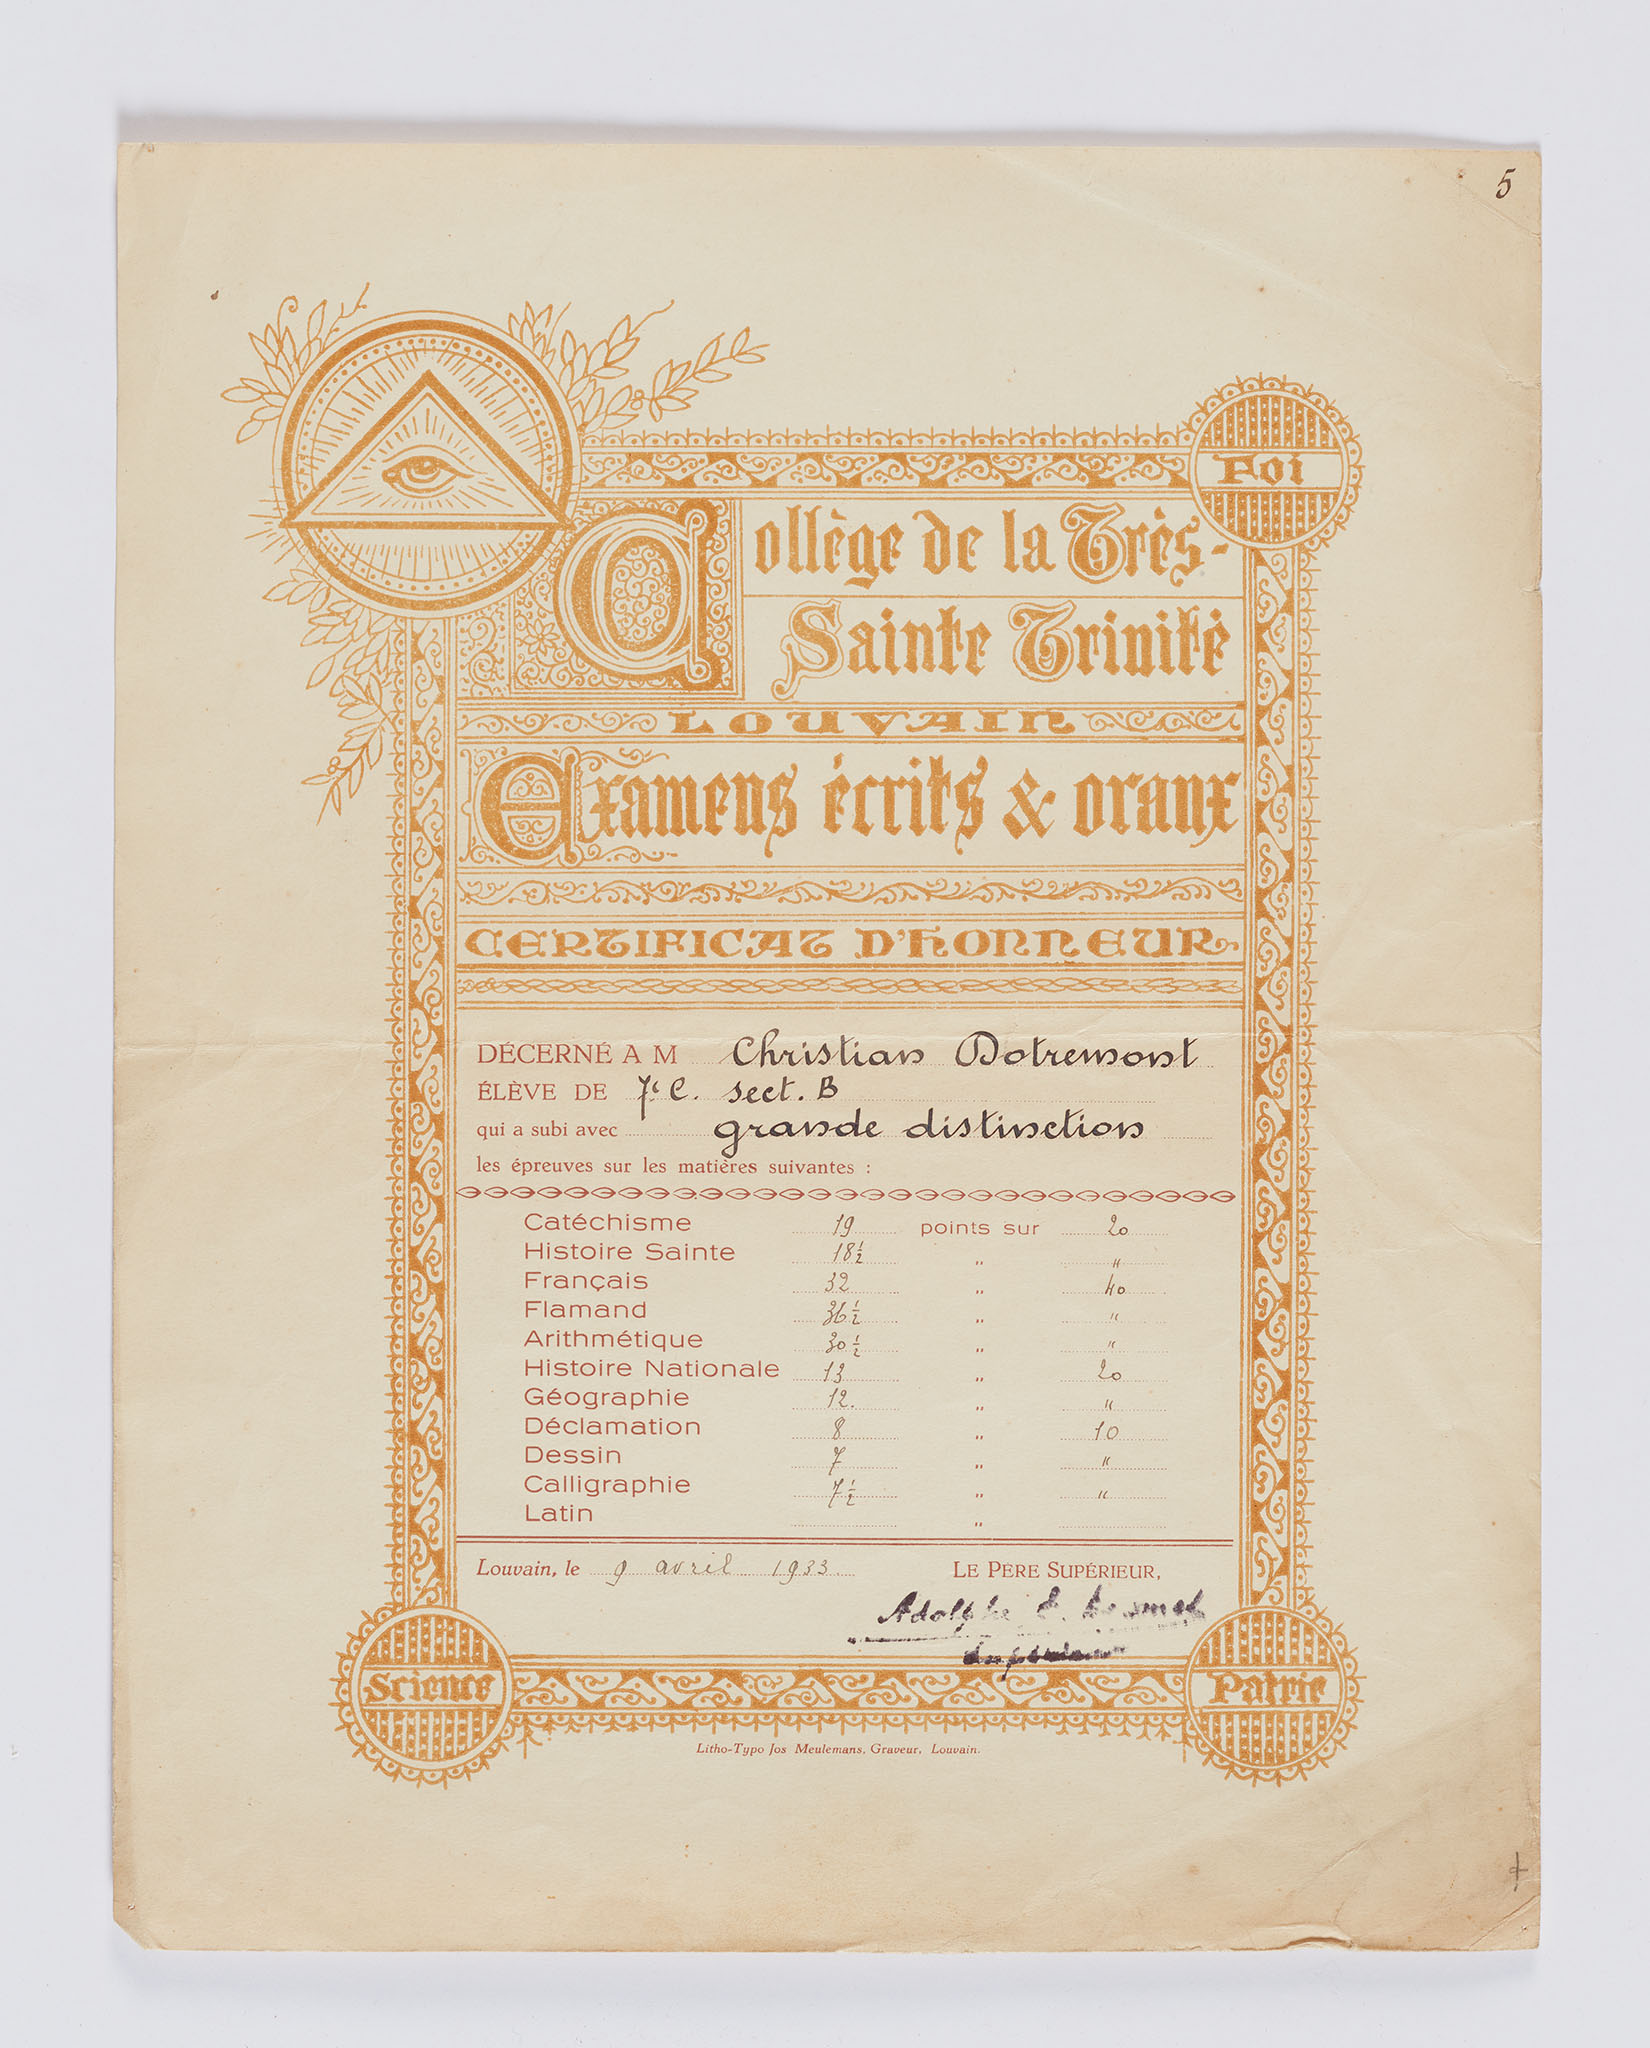 5
Foi
Collège de la Très-
Sainte Trinité
LOUVAIN
Examens écrits & oraux
CERTIFICAT D'HONNEUR
DÉCERNÉ A M Christian Dotremont
ÉLÈVE DE 7e C. sect. B
qui a subi avec grande distinction
les épreuves sur les matières suivantes :
Catéchisme 19 points sur 20
Histoire Sainte 18 1/2 " "
Français 32 " 40
Flamand 36 1/2 " "
Arithmétique 30 1/2 " "
Histoire Nationale 13 " 20
Géographie 12. " "
Déclamation 8 " 10
Dessin 7 " "
Calligraphie 7 1/2 " "
Latin "
Louvain, le 9 avril 1933. LE PÈRE SUPÉRIEUR,
Adolphe
Science Patrie
Litho-Typo Jos Meulemans, Graveur, Louvain.